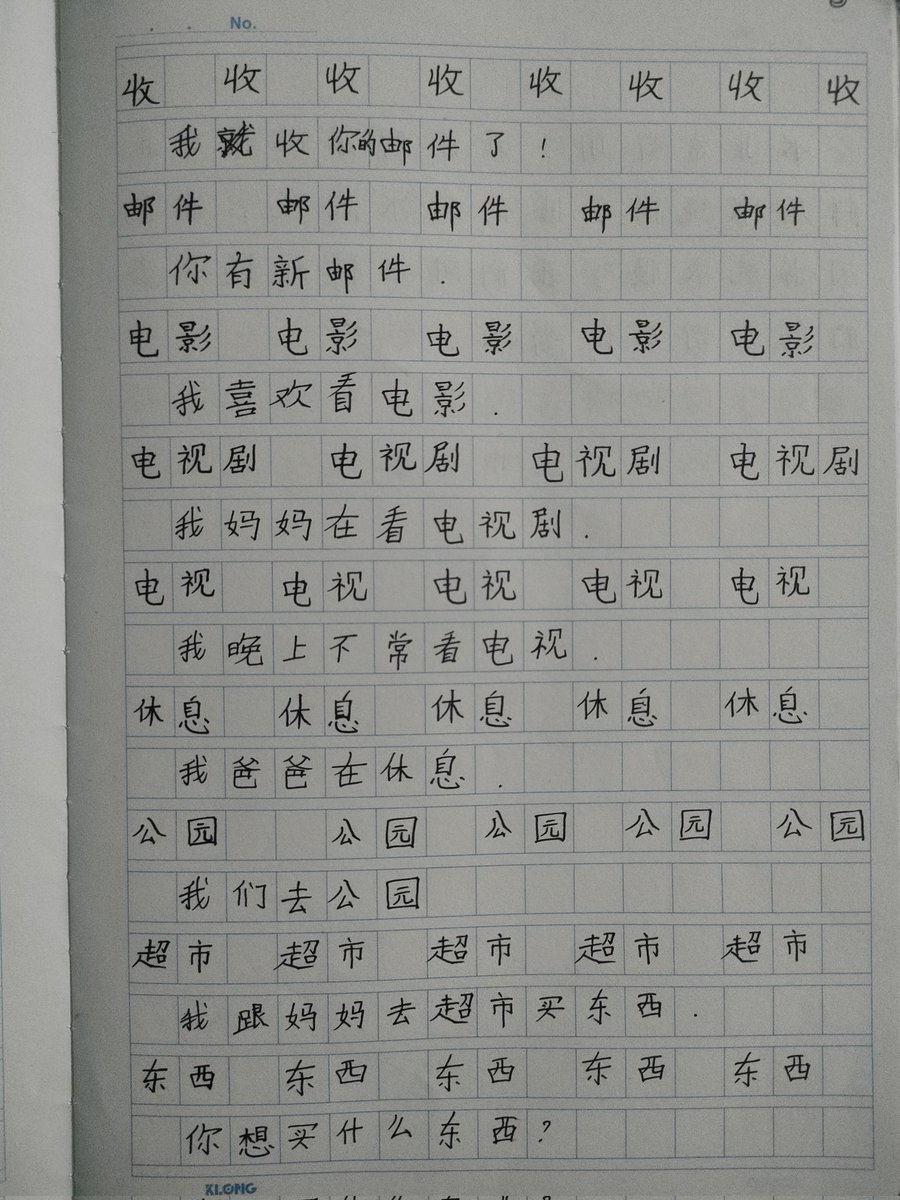 No.
收 收 收 收 收 收 收 收
我就收你的邮件了!
邮件 邮件 邮件 邮件 邮件
你有新邮件.
电影 电影 电影 电影 电影
我喜欢看电影.
电视剧 电视剧 电视剧 电视剧
我妈妈在看电视剧.
电视 电视 电视 电视 电视
我晚上不常看电视.
休息 休息 休息 休息 休息
我爸爸在休息.
公园 公园 公园 公园 公园
我们去公园
超市 超市 超市 超市 超市
我跟妈妈去超市买东西.
东西 东西 东西 东西 东西
你想买什么东西?
KLONG